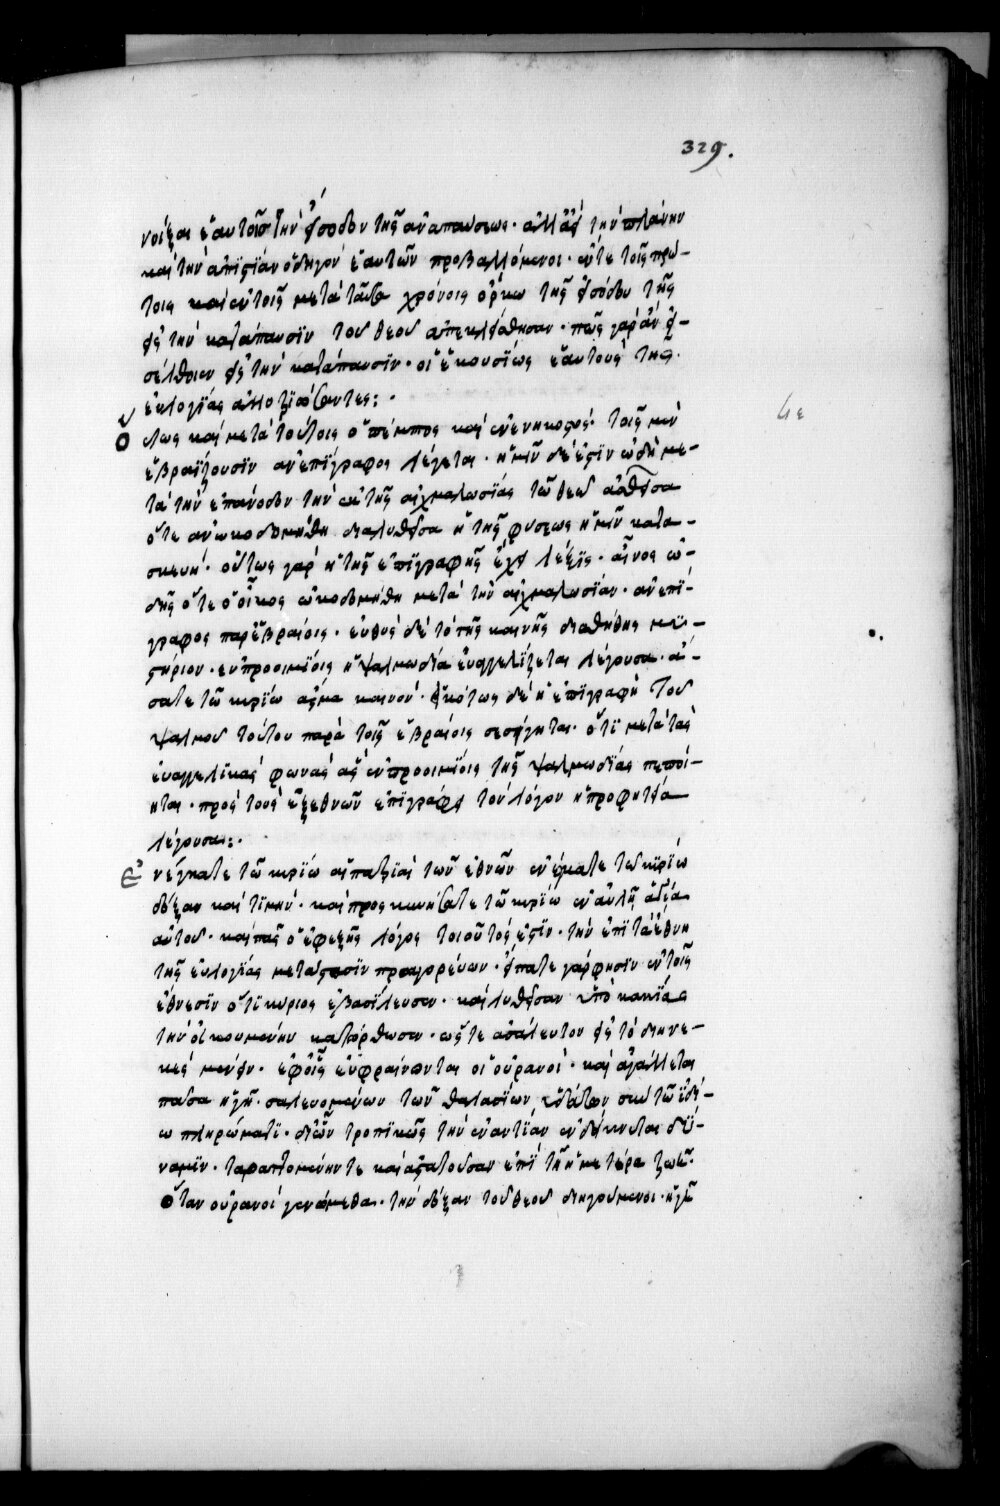 329.
νοίξαι ἑαυτοῖς τὴν εἴσοδον τῆς ἀναπαύσεως· ἀλλ᾽ ἀεὶ τὴν πλάνην
καὶ τὴν ἀπιστίαν ὁδηγὸν ἑαυτῶν προβαλλόμενοι· οὔτε τοῖς πρώ-
τοις καὶ ἐν τοῖς μετὰ ταῦτα χρόνοις ὅρκω τῆς εἰσόδου τῆς
εἰς τὴν κατάπαυσιν τοῦ θεοῦ ἀπεκλείσθησαν· πῶς γὰρ ἂν εἰ-
σέλθοιεν εἰς τὴν κατάπαυσιν· οἱ ἑκουσίως ἑαυτοὺς τῆς
εὐλογίας ἀλλοτριώσαντες:·
Ὅλως καὶ μετὰ τούτοις ὁ πέμπτος καὶ ἐνενηκοστός· τοῖς μὲν
ἑβραΐζουσιν ἀνεπίγραφος λέγεται· ἡμῖν δέ ἐστιν ὠδὴ με-
τὰ τὴν ἐπάνοδον τὴν ἐκ τῆς αἰχμαλωσίας τῶ θεῶ ἀσθεῖσα
ὅτε ἀνωκοδομήθη διαλυθεῖσα ἡ τῆς φύσεως ἡμῶν κατα-
σκευή· οὕτως γὰρ ἡ τῆς ἐπιγραφῆς ἔχει λέξις· αἶνος ὠ-
δῆς ὅτε ὁ οἶκος ὠκοδομήθη μετὰ τὴν αἰχμαλωσίαν· ἀνεπί-
γραφος παρ᾽ ἑβραίοις· εὐθὺς δὲ τὸ τῆς καινῆς διαθήκης μυ-
στήριον· ἐν προοιμίοις ἡ ψαλμωδία εὐαγγελίζεται λέγουσα· ἄ-
σατε τῶ κυρίω ἆσμα καινόν· εἰκότως δὲ ἡ ἐπιγραφὴ τοῦ
ψαλμοῦ τούτου παρὰ τοῖς ἑβραίοις σεσίγηται· ὅτι μετὰ τὰς
εὐαγγελικὰς φωνὰς ἃς ἐν προοιμίοις τῆς ψαλμωδίας πεποί-
ηται· πρὸς τοὺς ἐξ ἐθνῶν ἐπιγράφει τὸν λόγον ἡ προφητεία
λέγουσα:·
Ἐνέγκατε τῶ κυρίω αἱ πατριαὶ τῶν ἐθνῶν ἐνέγκατε τῶ κυρίω
δόξαν καὶ τιμήν· καὶ προσκυνήσατε τῶ κυρίω ἐν αὐλῆ ἁγία
αὐτοῦ· καὶ πᾶς ὁ ἐφεξῆς λόγος τοιοῦτός ἐστιν· τὴν ἐπὶ τὰ ἔθνη
τῆς εὐλογίας μετάστασιν προαγορεύων· εἴπατε γάρ φησιν ἐν τοῖς
ἔθνεσιν ὅτι κύριος ἐβασίλευσεν· καὶ λυθεῖσαν ὑπὸ κακίας
τὴν οἰκουμένην κατόρθωσεν· ὥστε ἀσάλευτον εἰς τὸ διηνε-
κὲς μένειν· ἐφ᾽ οἷς εὐφραίνονται οἱ οὐρανοί· καὶ ἀγάλλεται
πᾶσα ἡ γῆ· σαλευομένων τῶν θαλασσίων ὑδάτων σὺν τῶ ἰδί-
ω πληρώματι· δι᾽ ὧν τροπικῶς τὴν ἐναντίαν ἐνδείκνυται δύ-
ναμιν· ταραττομένην τε καὶ ἀπατοῦσαν ἐπὶ τῆ ἡμετέρα ζωῆ·
ὅταν οὐρανοὶ γενώμεθα· τὴν δόξαν τοῦ θεοῦ διηγούμενοι· ἡ γῆ